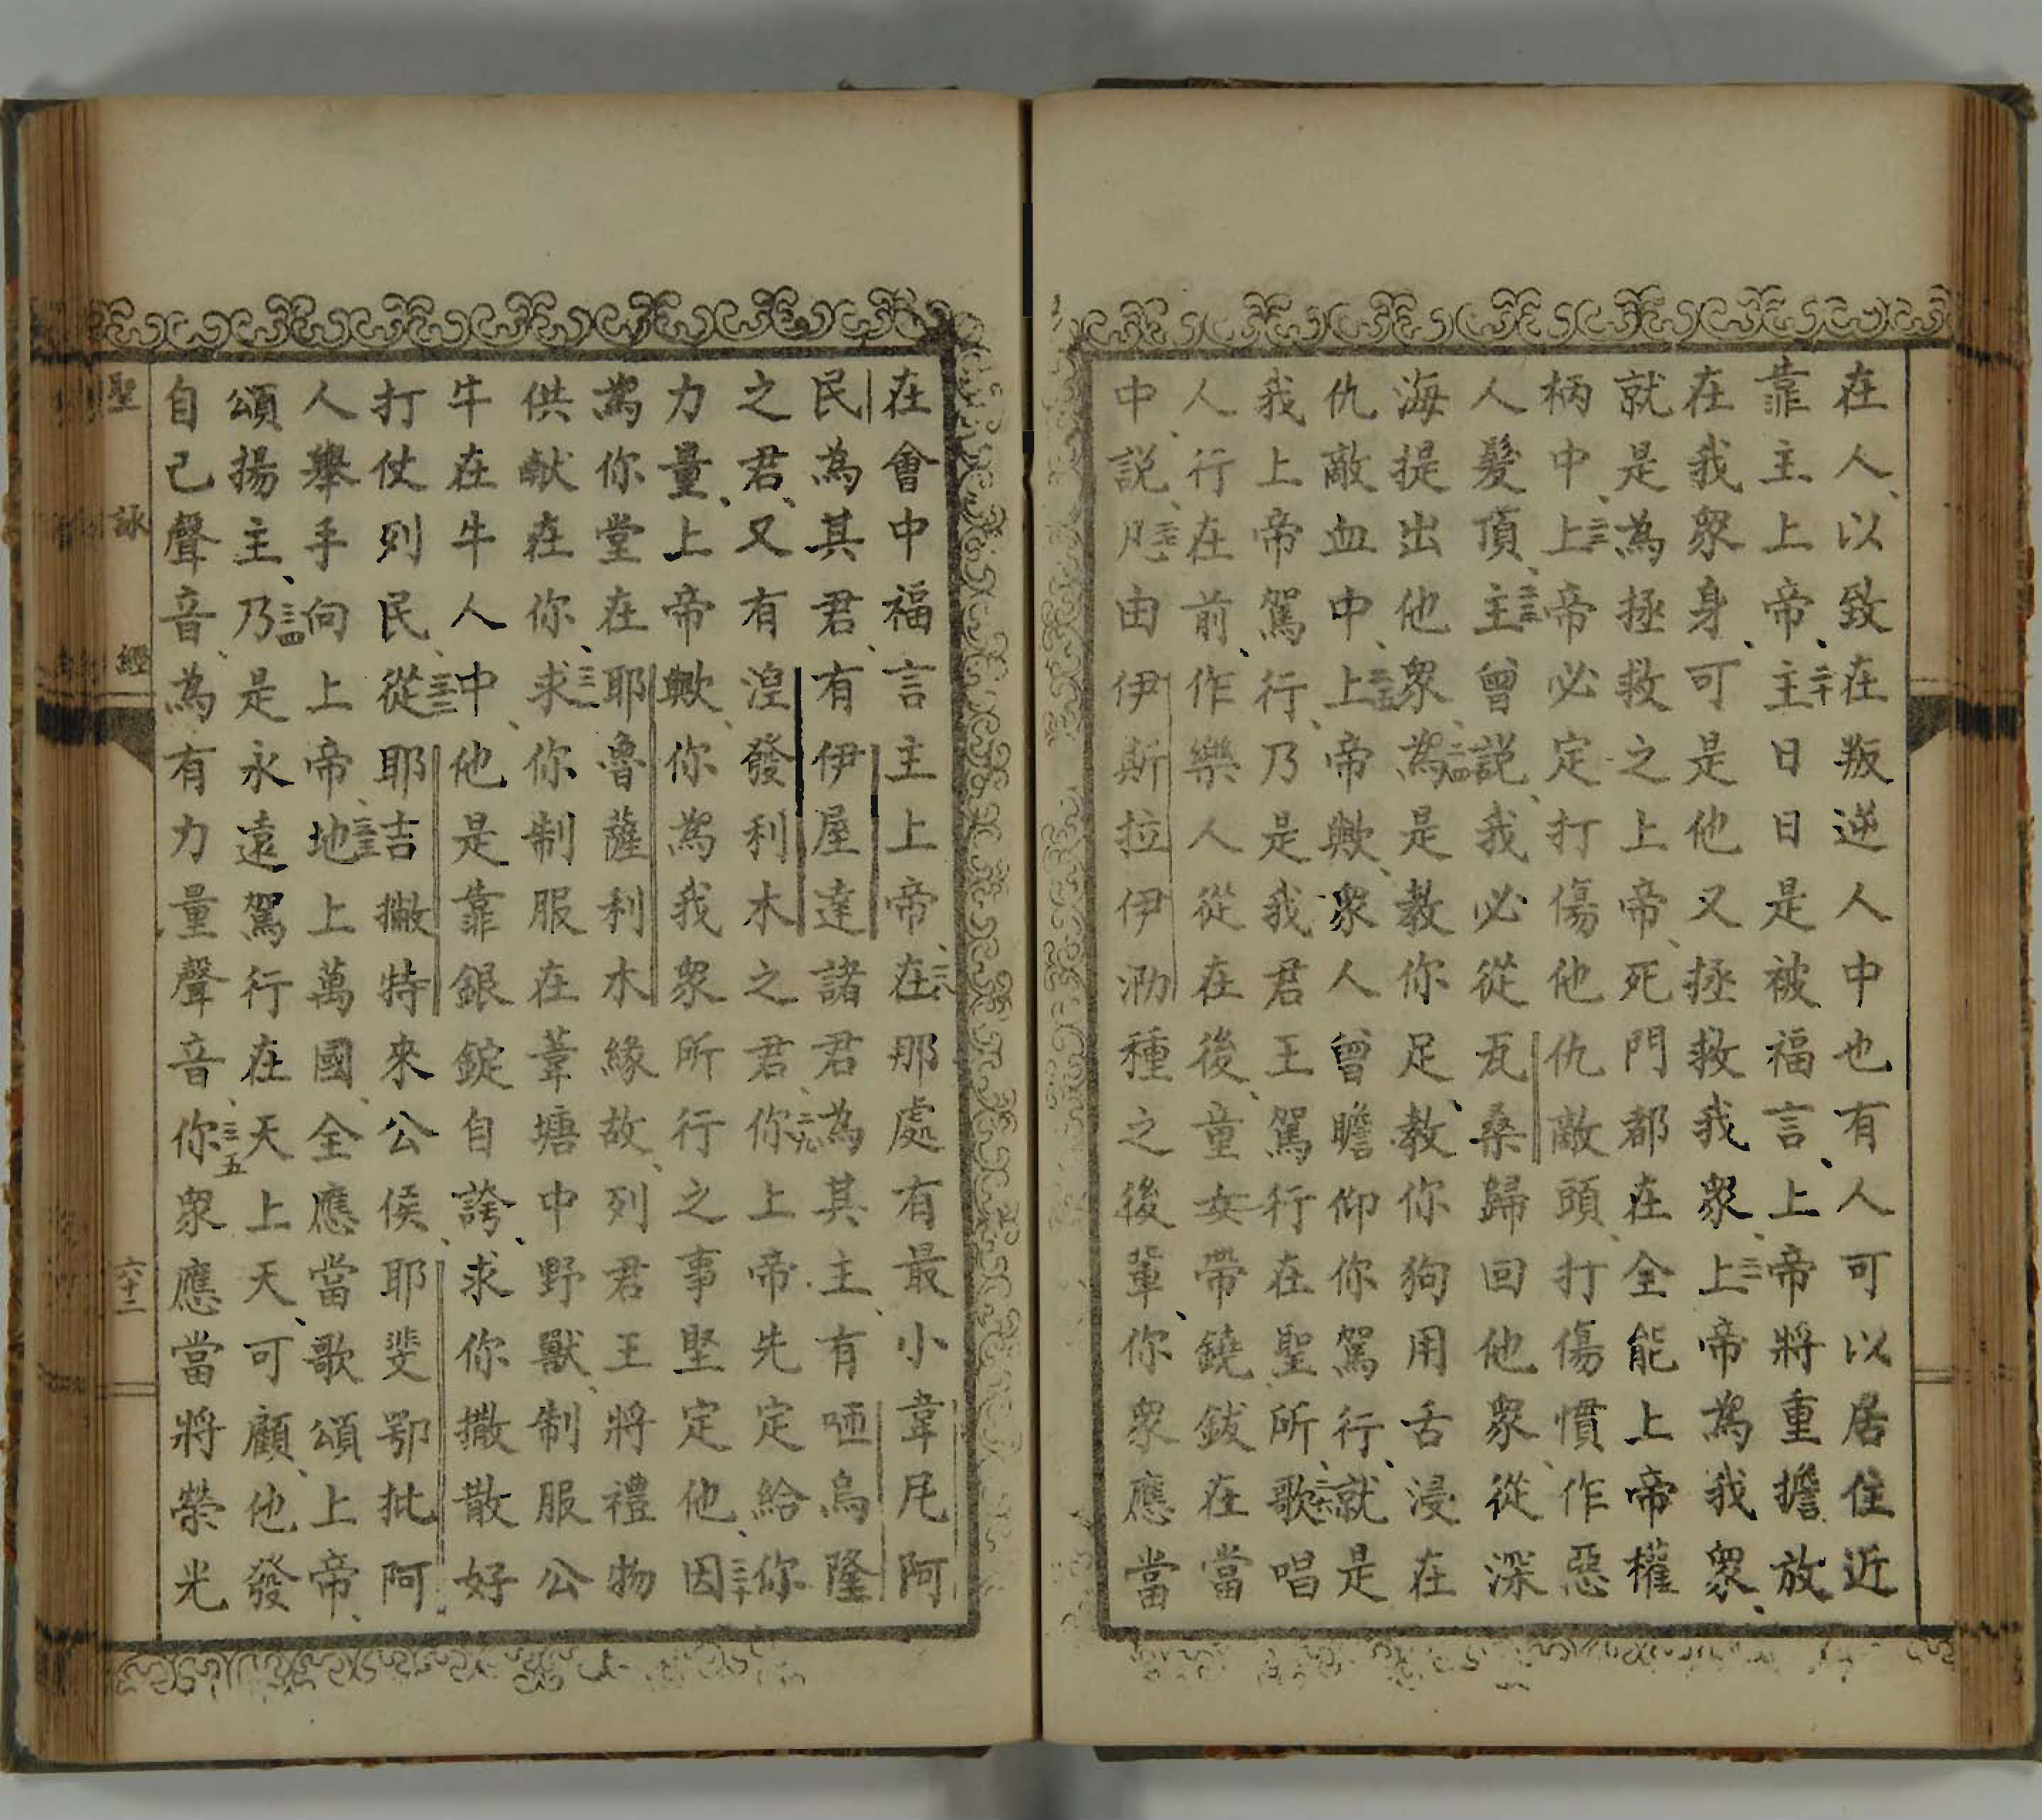 在人、以致在叛逆人中也有人可以居住近
靠主上帝、二十主日日是被福言、上帝將重擔放
在我眾身、可是他又拯救我眾、二一上帝為我眾、
就是為拯救之上帝、死門都在全能上帝權
柄中、二二上帝必定打傷他仇敵頭、打傷慣作惡
人髮頂、二三主曾説、我必從瓦桑歸回他眾、從深
海提出他眾、二四為是教你足、教你狗用舌浸在
仇敵血中、二五上帝歟、眾人曾瞻仰你駕行、就是
我上帝駕行、乃是我君王駕行在聖所、二六歌唱
人行在前、作樂人從在後、童女帶鐃鈸在當
中説、二七由伊斯拉伊泐種之後輩、你眾應當
在會中福言主上帝、二八在那處有最小韋凥阿
民為其君、有伊屋達諸君為其主、有咂烏隆
之君、又有湼發利木之君、二九你上帝先定給你
力量、上帝歟、你為我眾所行之事堅定他、三十因
為你堂在耶魯薩利木緣故、列君王將禮物
供献在你、三一求你制服在葦塘中野獸、制服公
牛在牛人中、他是靠銀錠自誇、求你撒散好
打仗列民、三二從耶吉撇特來公侯、耶斐鄂批阿
人舉手向上帝、三三地上萬國、全應當歌頌上帝、
頌揚主、三四乃是永遠駕行在天上天、可顧、他發
自己聲音、為有力量聲音、三五你眾應當將榮光
聖詠經
六十二